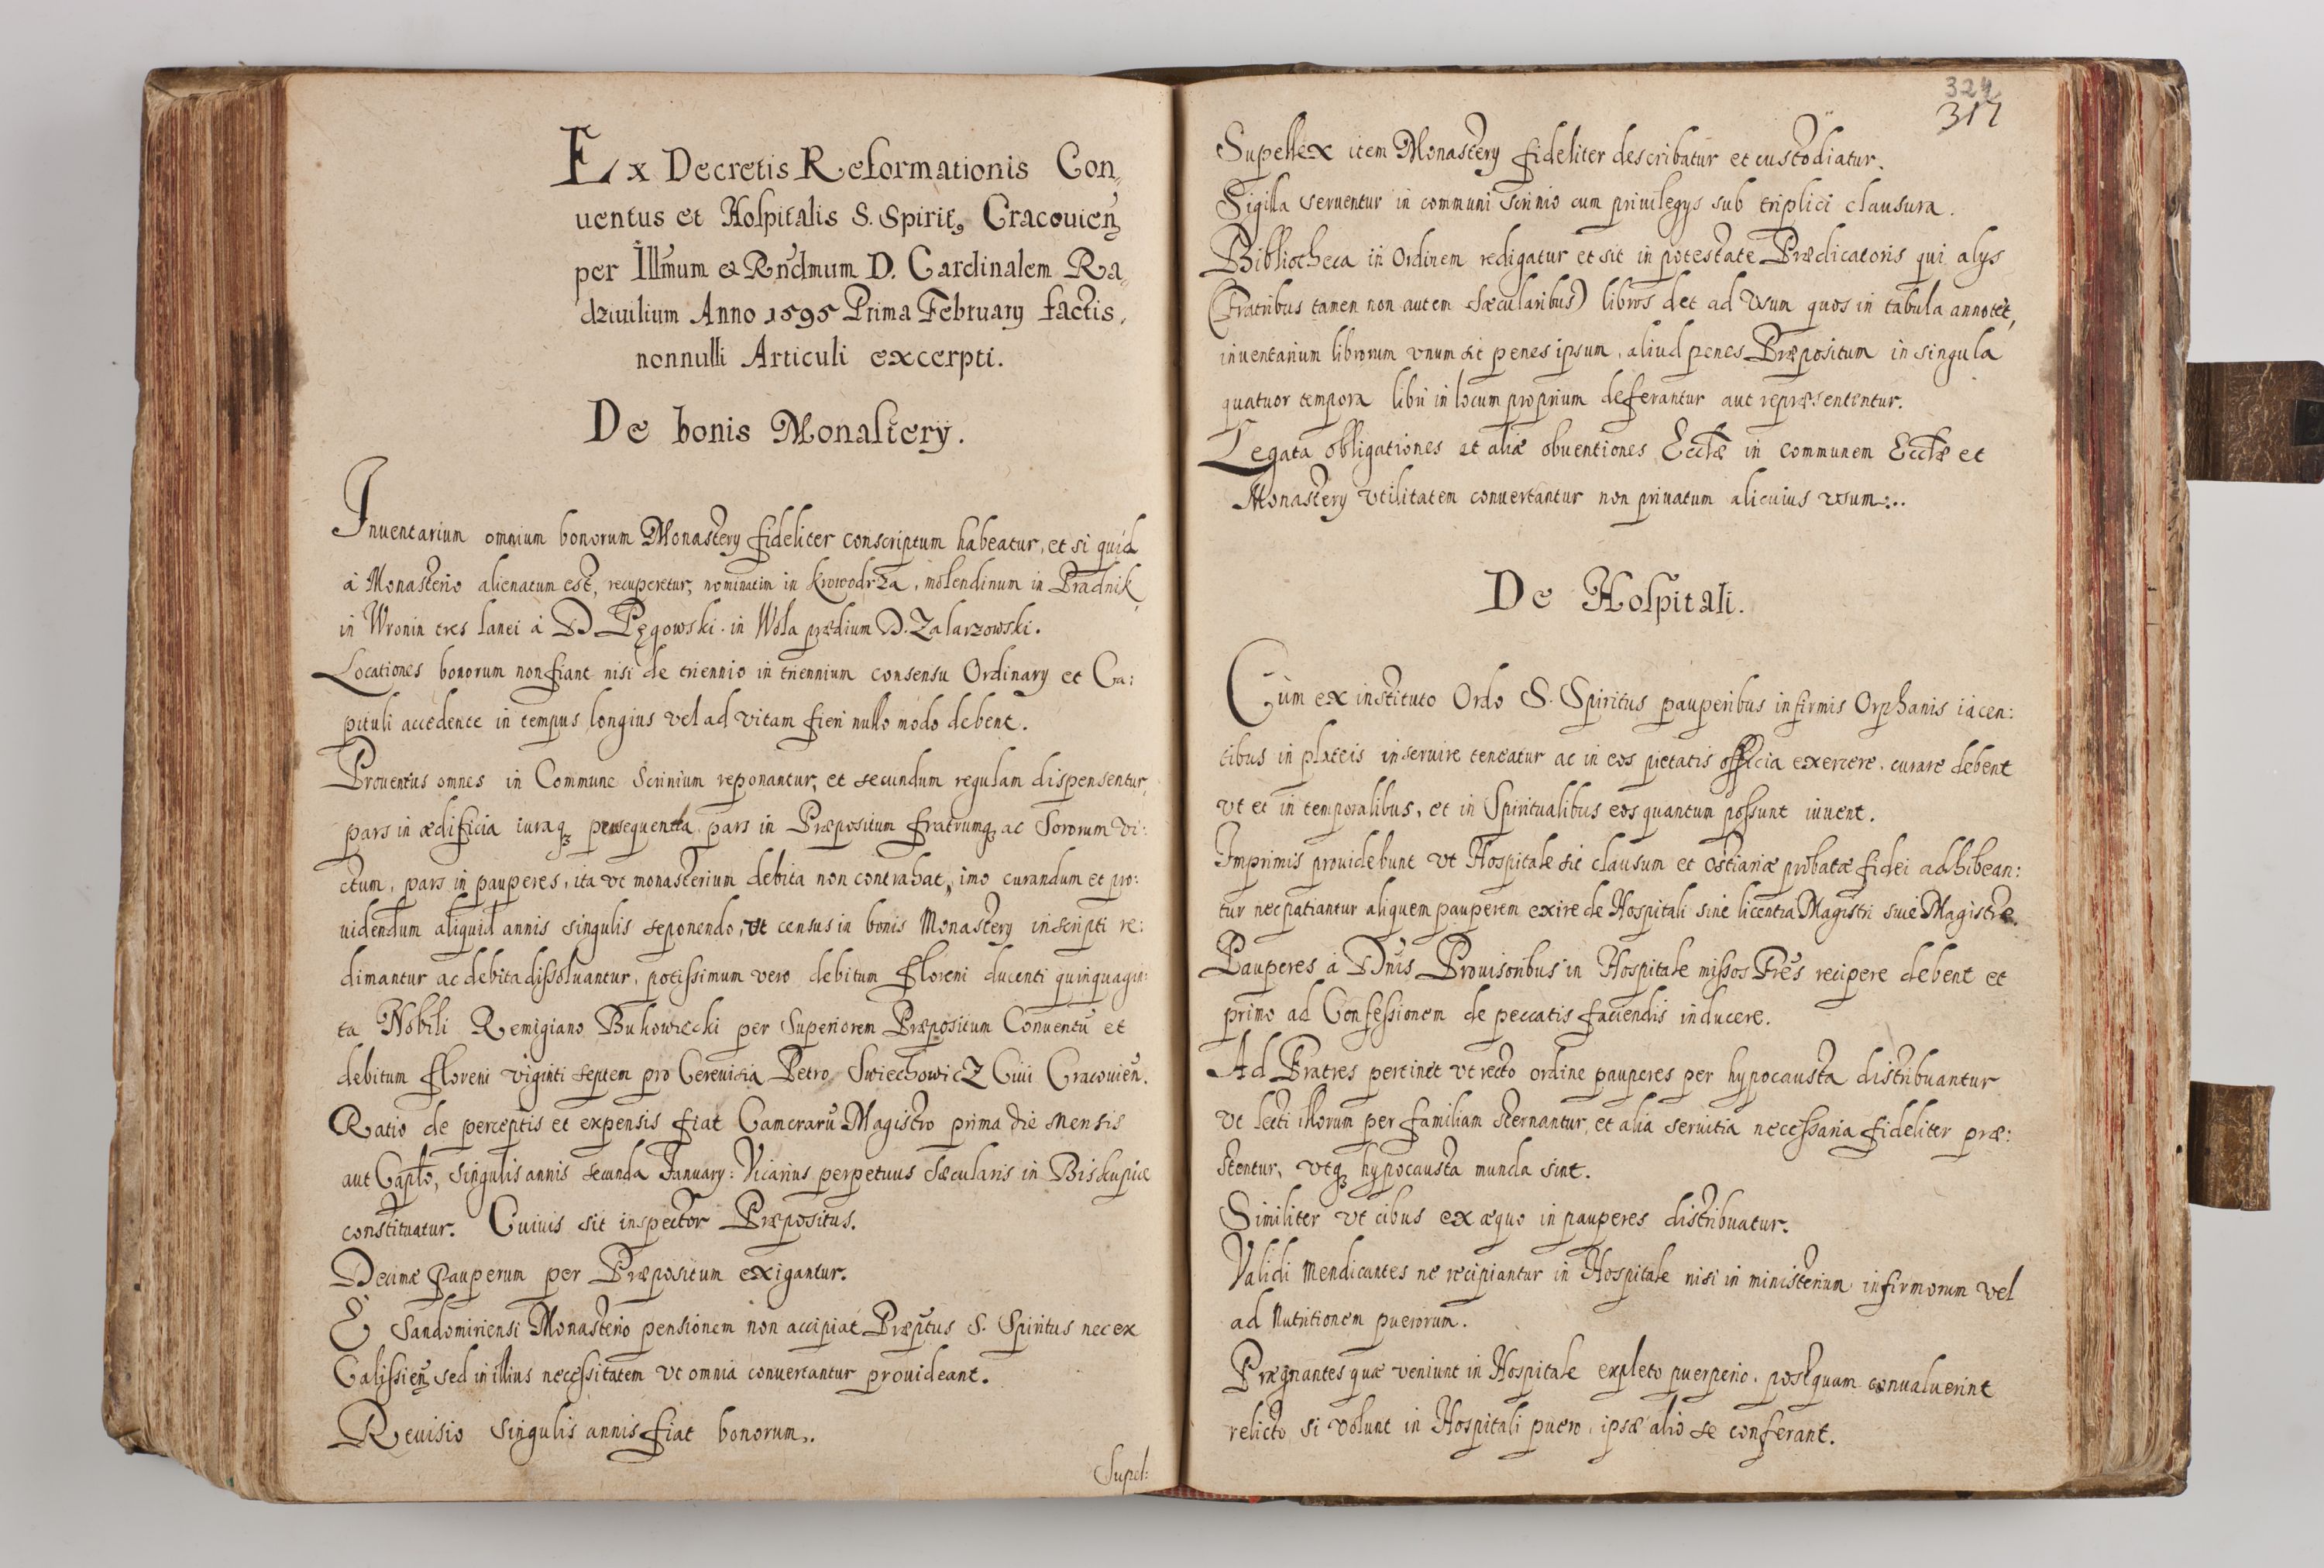 Ex Decretis Reformationis Con„
uentus et Hospitalis S. Spiritꝰ Cracouien̄
per Illmum & Rndmum D. Cardinalem Ra„
dziuilium Anno 1595 Prima February factis,
nonnulli Articuli excerpti.
De bonis Monastery.
Inuentarium omnium bonorum Monastery fideliter conscriptum habeatur, et si quid
à Monasterio alienatum est, recuperetur, nominatim in Krowodrza, molendinum in Pradnik,
in Wronin tres lanei à D Pęgowski. in Wola prædium D. Zalarzowski.
Locationes bonorum non fiant nisi de triennio in triennium consensu Ordinary et Ca:
pituli accedente in tempus longius vel ad vitam fieri nullo modo debent.
Prouentus omnes in Commune Scrinium reponantur, et secundum regulam dispensentur,
pars in ædificia iuraq₃ persequenda pars in Præpositum fratrumq₃ ac Sororum vi:
ctum, pars in pauperes, ita vt monasterium debita non contrahat, imo curandum et pro:
uidendum aliquid annis singulis seponendo, vt census in bonis Monastery inscripti re:
dimantur ac debita dissoluantur, potissimum vero debitum floreni ducenti quinquagin:
ta Nobili Remigiano Bukowiecki per Superiorem Præpositum Conuentũ et
debitum floreni viginti septem pro Cereuisia Petro SwiechowicZ Ciui Cracouien̄.
Ratio de perceptis et expensis fiat Camerarũ Magistro prima die mensis
aut Caplo, singulis annis secunda January: Vicarius perpetuus sæcularis in Biskupice
constituatur. Cuiuis sit inspector Præpositus.
Decimæ pauperum per Præpositum exigantur.
E Sandomiriensi Monasterio pensionem non accipiat Præptus S. Spiritus nec ex
Calissien̄ sed in illius necessitatem vt omnia conuertantur prouideant.
Reuisio singulis annis fiat bonorum,.
Supel:
324
317
Supellex item Monastery fideliter describatur et custodiatur.
Sigilla seruentur in communi scrinio cum priuilegys sub triplici clausura.
Bibliotheca in Ordinem redigatur et sit in potestate Prædicatoris qui alys
(Fratribus tamen non autem sæcularibus) libros det ad vsum quos in tabula annotet,
inuentarium librorum vnum sit penes ipsum, aliud penes Præpositum in singula
quatuor tempora libri in locum proprium deferantur aut repræsententur.
Legata obligationes et aliæ obuentiones Ecclæ in communem Ecclæ et
Monastery vtilitatem conuertantur non priuatum alicuius vsum:..
De Hospitali.
Cùm ex instituto Ordo S. Spiritus pauperibus infirmis Orphanis iacen:
tibus in plateis inseruire teneatur ac in eos pietatis officia exercere, curare debent
vt et in temporalibus, et in Spiritualibus eos quantum possunt iuuent.
Imprimis prouidebunt vt Hospitale sit clausum et ostiariæ probatæ fidei adhibean:
tur nec patiantur aliquem pauperem exire de Hospitali sine licentia Magistri siuè Magistræ.
Pauperes à Dnis Prouisoribus in Hospitale missos Fres recipere debent et
primo ad Confessionem de peccatis faciendis inducere.
Ad Fratres pertinet vt recto ordine pauperes per hypocausta distribuantur
vt lecti illorum per familiam sternantur, et alia seruitia necessaria fideliter præ:
stentur, vtq₃ hypocausta munda sint.
Similiter vt cibus ex æquo in pauperes distribuatur.
Validi mendicantes ne recipiantur in Hospitale nisi in ministerium infirmorum vel
ad Nutritionem puerorum.
Prægnantes quæ veniunt in Hospitale expleto puerperio, postquam conualuerint
relicto si volunt in Hospitali puero, ipsæ alio se conferant.